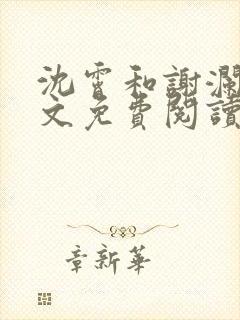 沈霄和謝瀾
文免費閱讀
章新華